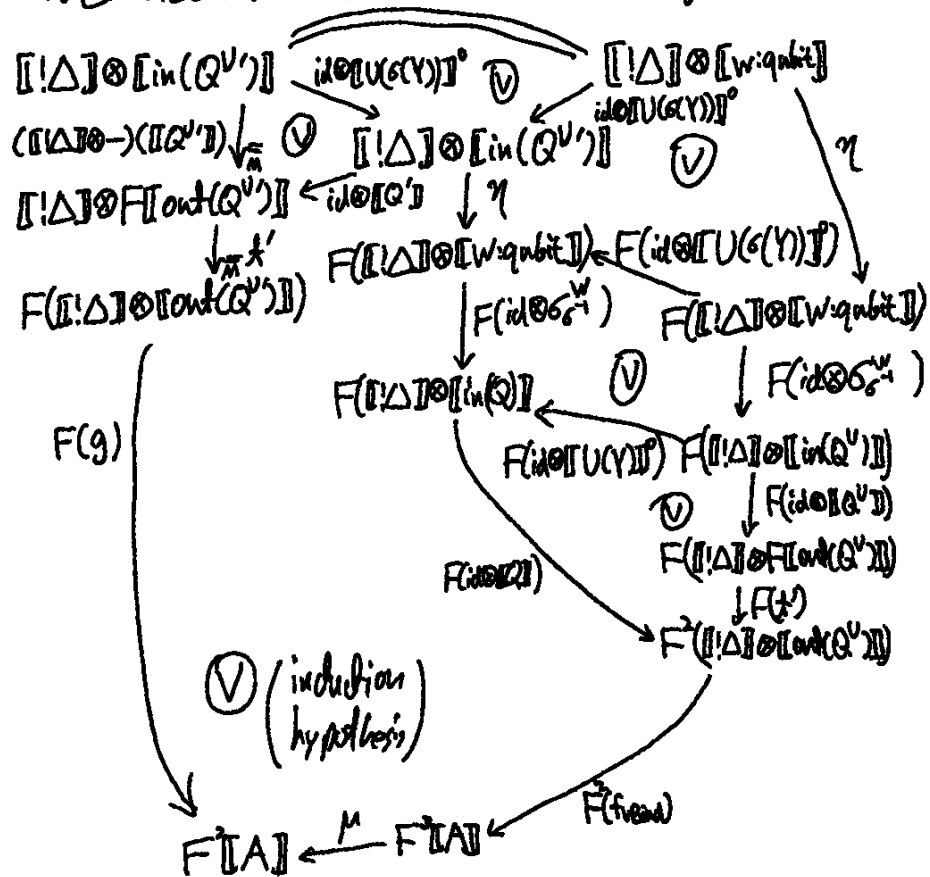 ⟦!Δ⟧⊗⟦in(Q^{U'})⟧ id⊗⟦U(σ(Y))⟧⁰ Ⓥ ⟦!Δ⟧⊗⟦W:qubit⟧
(⟦!Δ⟧⊗−)(⟦Q^{U'}⟧) Ⓥ ⟦!Δ⟧⊗⟦in(Q^{U'})⟧ id⊗⟦U(σ(Y))⟧⁰
Ⓥ η
⟦!Δ⟧⊗F⟦out(Q^{U'})⟧ id⊗⟦Q'⟧ η
t' F(⟦!Δ⟧⊗⟦W:qubit⟧) F(id⊗⟦U(σ(Y))⟧⁰)
F(⟦!Δ⟧⊗⟦out(Q^{U'})⟧) F(id⊗σ^W_{σ⁻¹}) F(⟦!Δ⟧⊗⟦W:qubit⟧)
Ⓥ F(id⊗σ^W_{σ⁻¹})
F(⟦!Δ⟧⊗⟦in(Q)⟧)
F(g) F(id⊗⟦U(Y)⟧⁰) F(⟦!Δ⟧⊗⟦in(Q^U)⟧)
Ⓥ F(id⊗⟦Q^U⟧)
F(id⊗⟦Q⟧) F(⟦!Δ⟧⊗F⟦out(Q^U)⟧)
F(t')
F²(⟦!Δ⟧⊗⟦out(Q^U)⟧)
Ⓥ (induction
hypothesis)
F²⟦A⟧ μ F³⟦A⟧